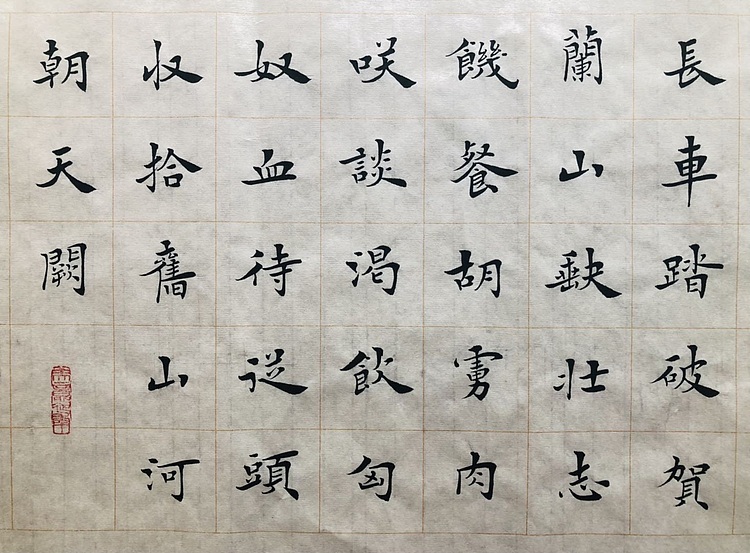 長車踏破賀
蘭山缺壮志
饑餐胡虜肉
咲談渴飲匈
奴血待從頭
収拾舊山河
朝天闕